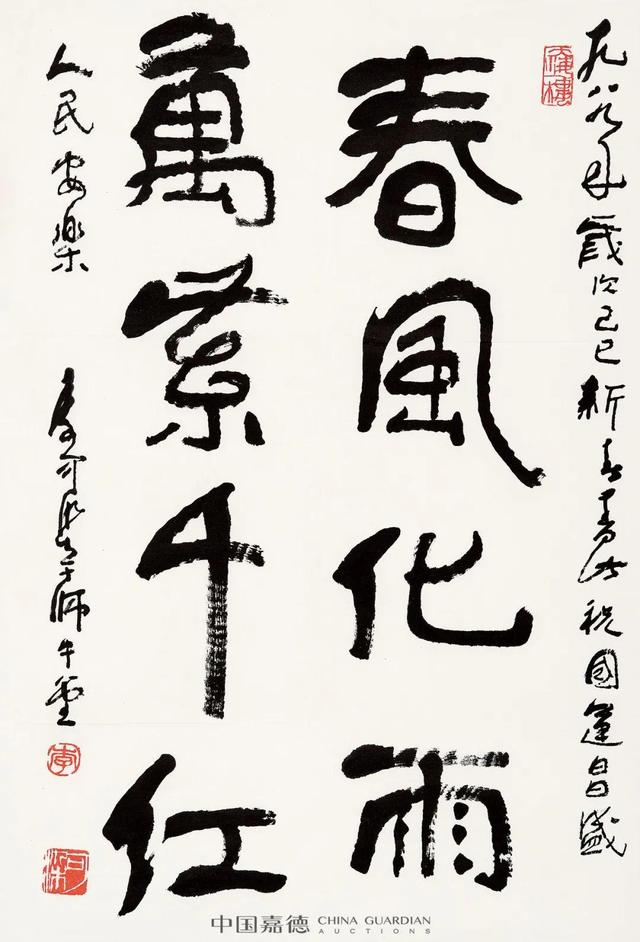 一九八九年歲次己巳新春書此祝國運昌盛
春風化雨
萬紫千红
人民安樂
李可染于師牛堂
李
可染
中国嘉德 CHINA GUARDIAN
AUCTIONS